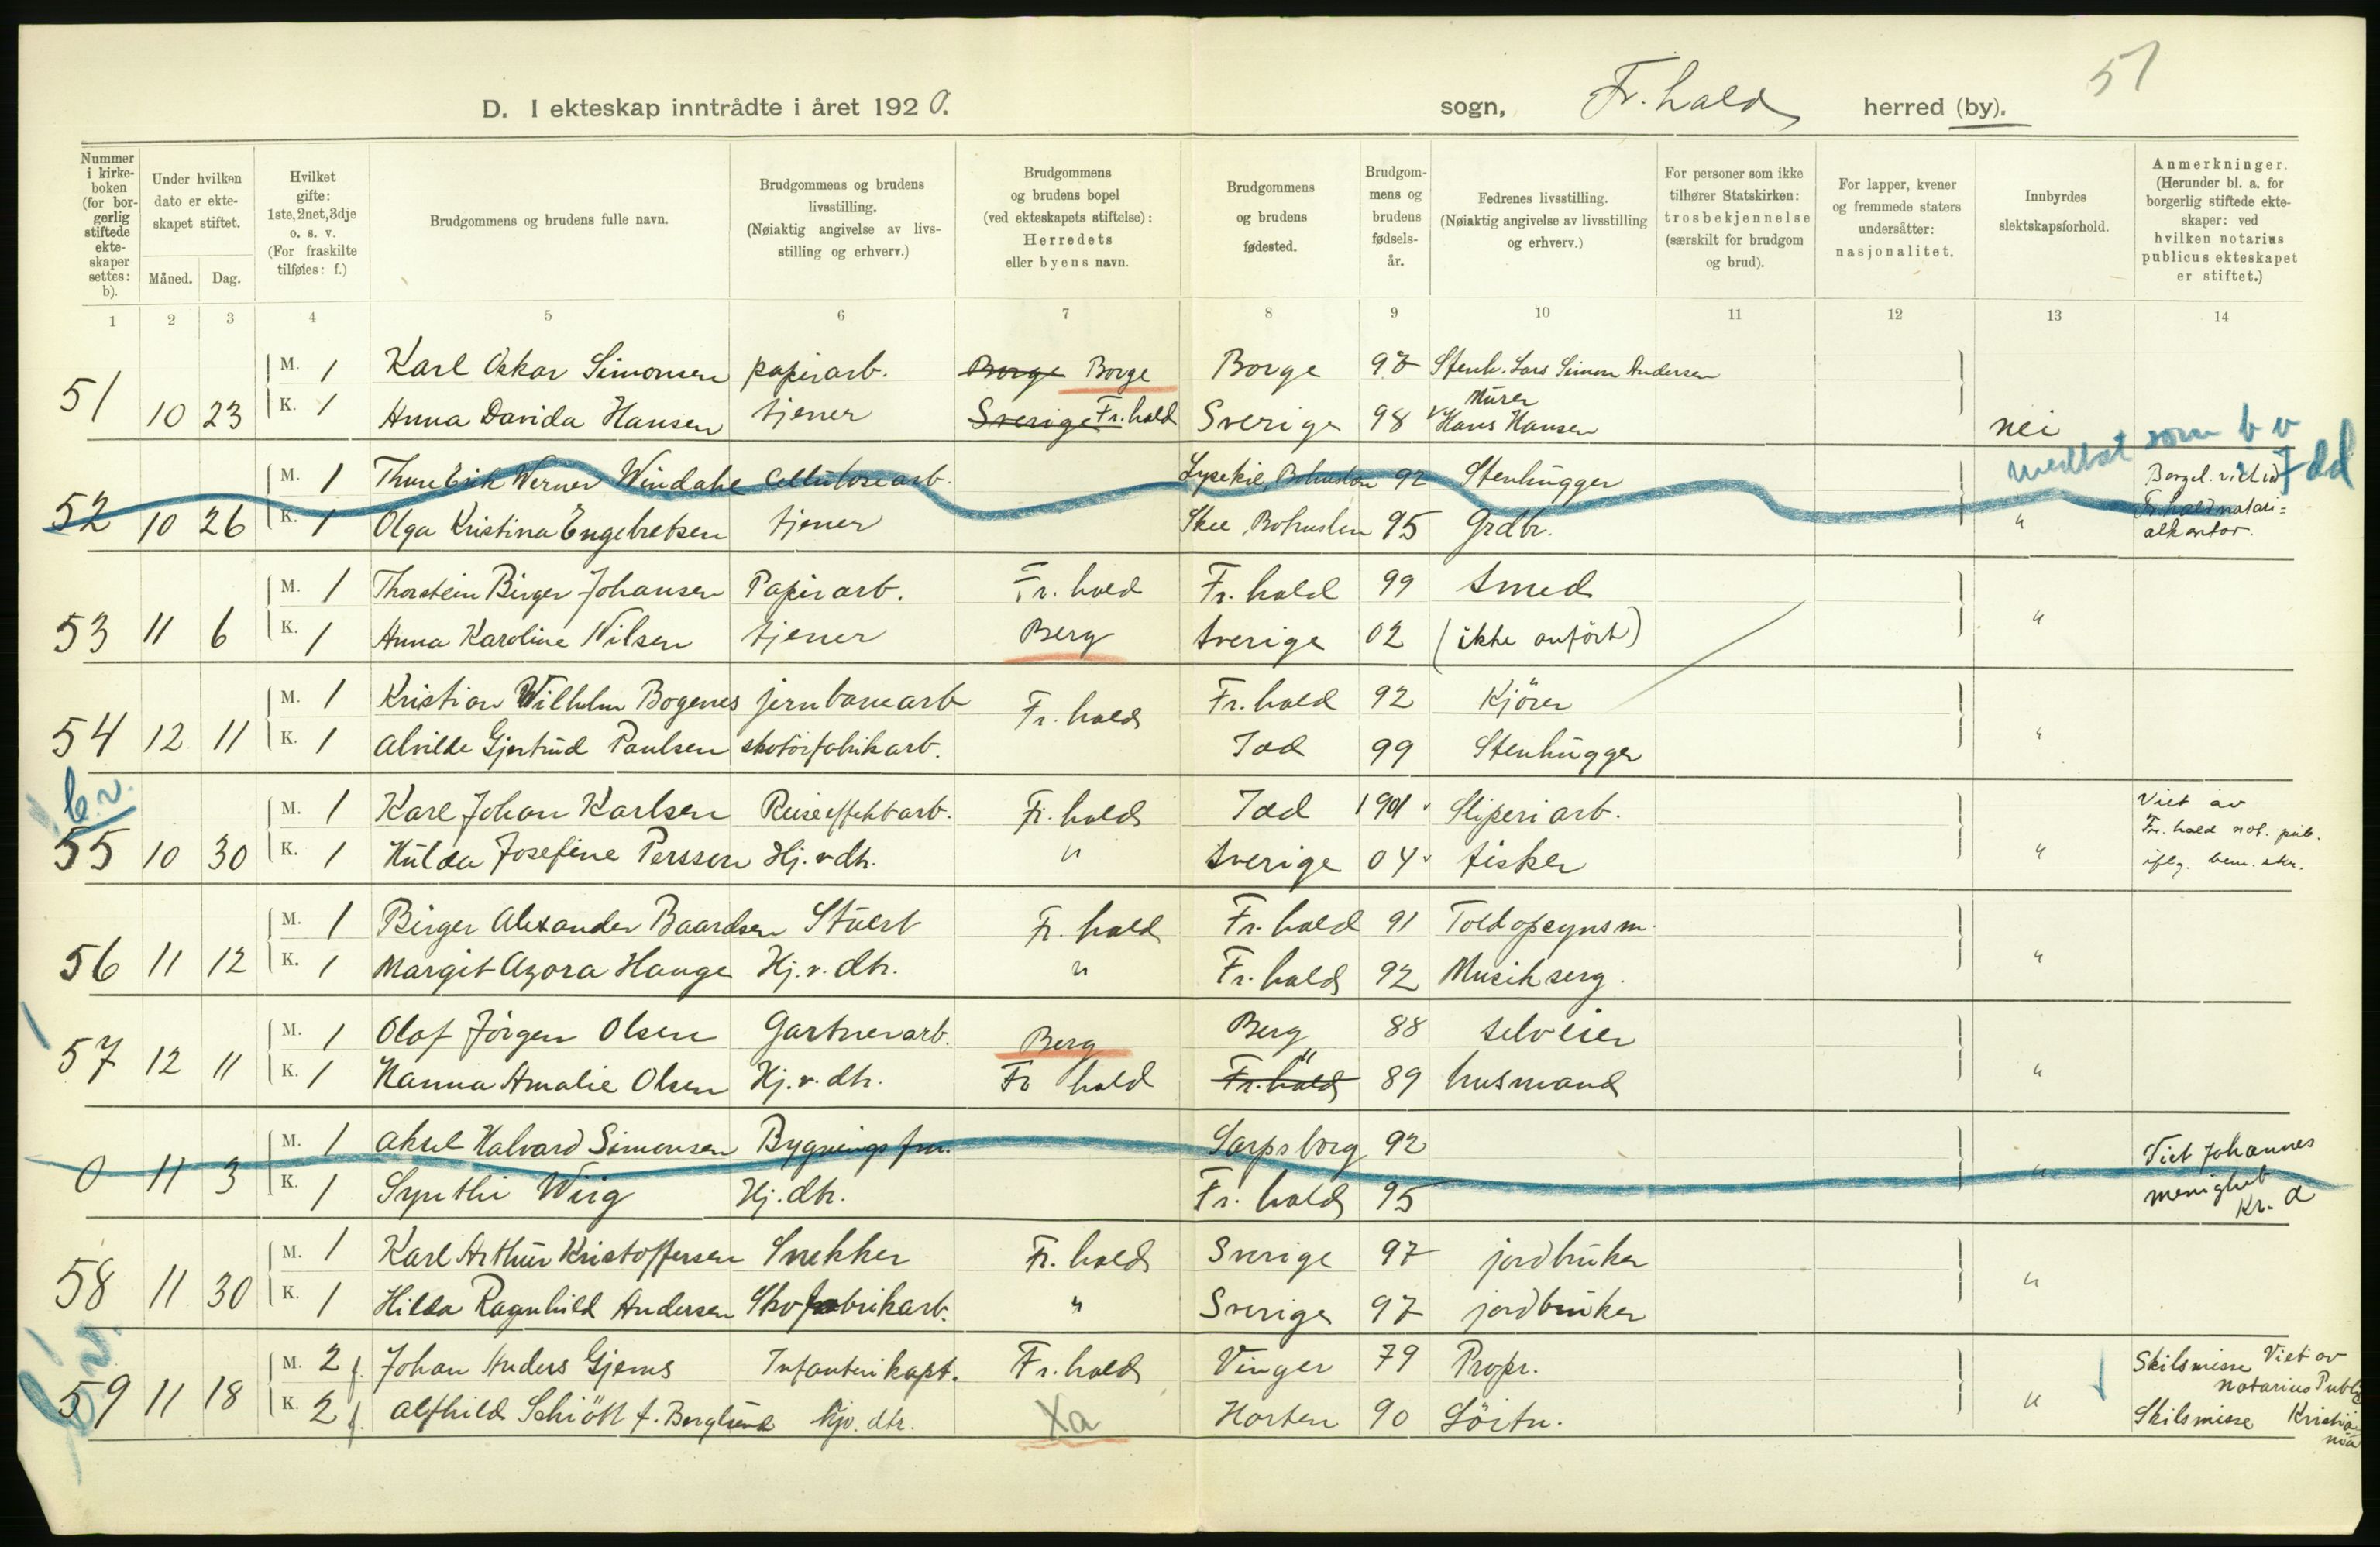 51
D. I ekteskap inntrådte i året 1920.
sogn, Fr.hald herred (by).
Nummer i kirkeboken (for borgerlig stiftede ekteskaper settes: b).
Under hvilken dato er ekteskapet stiftet.
Måned. Dag.
Hvilket gifte: 1ste, 2net, 3dje o. s. v. (For fraskilte tilføies: f.)
Brudgommens og brudens fulle navn.
Brudgommens og brudens livsstilling. (Nøiaktig angivelse av livsstilling og erhverv.)
Brudgommens og brudens bopel (ved ekteskapets stiftelse): Herredets eller byens navn.
Brudgommens og brudens fødested.
Brudgommens og brudens fødselsår.
Fedrenes livsstilling. (Nøiaktig angivelse av livsstilling og erhverv.)
For personer som ikke tilhører Statskirken: trosbekjennelse (særskilt for brudgom og brud).
For lapper, kvener og fremmede staters undersåtter: nasjonalitet.
Innbyrdes slektskapsforhold.
Anmerkninger. (Herunder bl. a. for borgerlig stiftede ekteskaper: ved hvilken notarius publicus ekteskapet er stiftet.)
1 2 3 4 5 6 7 8 9 10 11 12 13 14
M. 1 Karl Oskar Simonsen papirarb. Borge Borge Borge 97 Stenh. Lars Simon Andersen
51 10 23 K. 1 Anna Davida Hansen tjener Sverige Fr.hald Sverige 98 Murer Hans Hansen nei
medtat som b v Idd
M. 1 Thure Erik Werner Windahl Cellulosearb. Lysekil, Bohuslen 92 Stenhugger
52 10 26 K. 1 Olga Kristina Engebretsen tjener Skee, Bohuslen 95 Grdbr. " Borgel. viet ved Fr.hald notarialkontor.
M. 1 Thorstein Birger Johansen Papirarb. Fr.hald Fr.hald 99 Smed
53 11 6 K. 1 Anna Karoline Nilsen tjener Berg Sverige 02 (ikke anført) "
M. 1 Kristian Wilhelm Bogenes jernbanearb Fr.hald Fr.hald 92 Kjörer
54 12 11 K. 1 Alvilde Gjertrud Paulsen skotöifabrikarb. Idd 99 Stenhugger "
b.v.
M. 1 Karl Johan Karlsen Reiseeffektarb. Fr.hald Idd 1901 Sliperiarb. Viet av
55 10 30 K. 1 Hulda Josefine Persson Hj.v.dtr. " Sverige 04 fisker " Fr.hald not. pub. iflg. bem. skr.
M. 1 Birger Alexander Baardsen Stuert Fr.hald Fr.hald 91 Toldopsynsm.
56 11 12 K. 1 Margit Azora Hauge Hj.v.dtr. " Fr.hald 92 Musikserg. "
M. 1 Olaf Jörgen Olsen Gartnerarb. Berg Berg 88 Selveier
57 12 11 K. 1 Hanna Amalie Olsen Hj.v.dtr. Fr hald Fr.hald " 89 husmand "
M. 1 Aksel Halvard Simonsen Bygningsfm. Sarpsborg 92 Viet Johannes
0 11 3 K. 1 Synthi Wiig Hj.dtr. Fr.hald 95 " menighet Kr. a
M. 1 Karl Arthur Kristoffersen Snekker Fr.hald Sverige 97 jordbruker
58 11 30 K. 1 Hilda Ragnhild Andersen Skofabrikarb. " Sverige 97 jordbruker "
b.v.
M. 2 f. Johan Anders Gjems Infanterikapt. Fr.hald Vinger 79 Propr. Skilsmisse Viet av notarius Public
59 11 18 K. 2 f. Alfhild Schiött f. Berglund Hjv. dtr. Xa Horten 90 Löitn. " Skilsmisse Kristiania